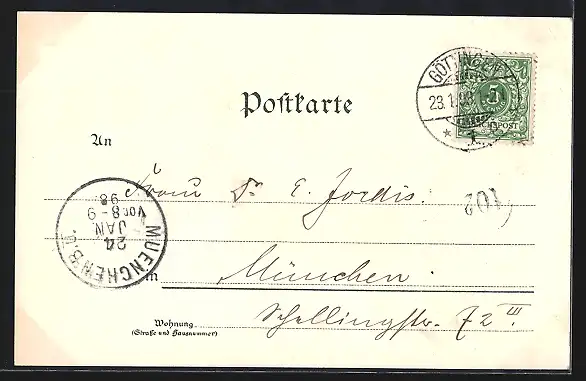 GÖTTINGEN
23.1.98
* 1.
5
REICHSPOST
Postkarte
An
Frau Dr E. Jordis.
(102
MUENCHEN B.
24
JAN.
Vor 8-9
98
in München.
Wohnung
(Straße und Hausnummer)
Schellingstr. 72 III.